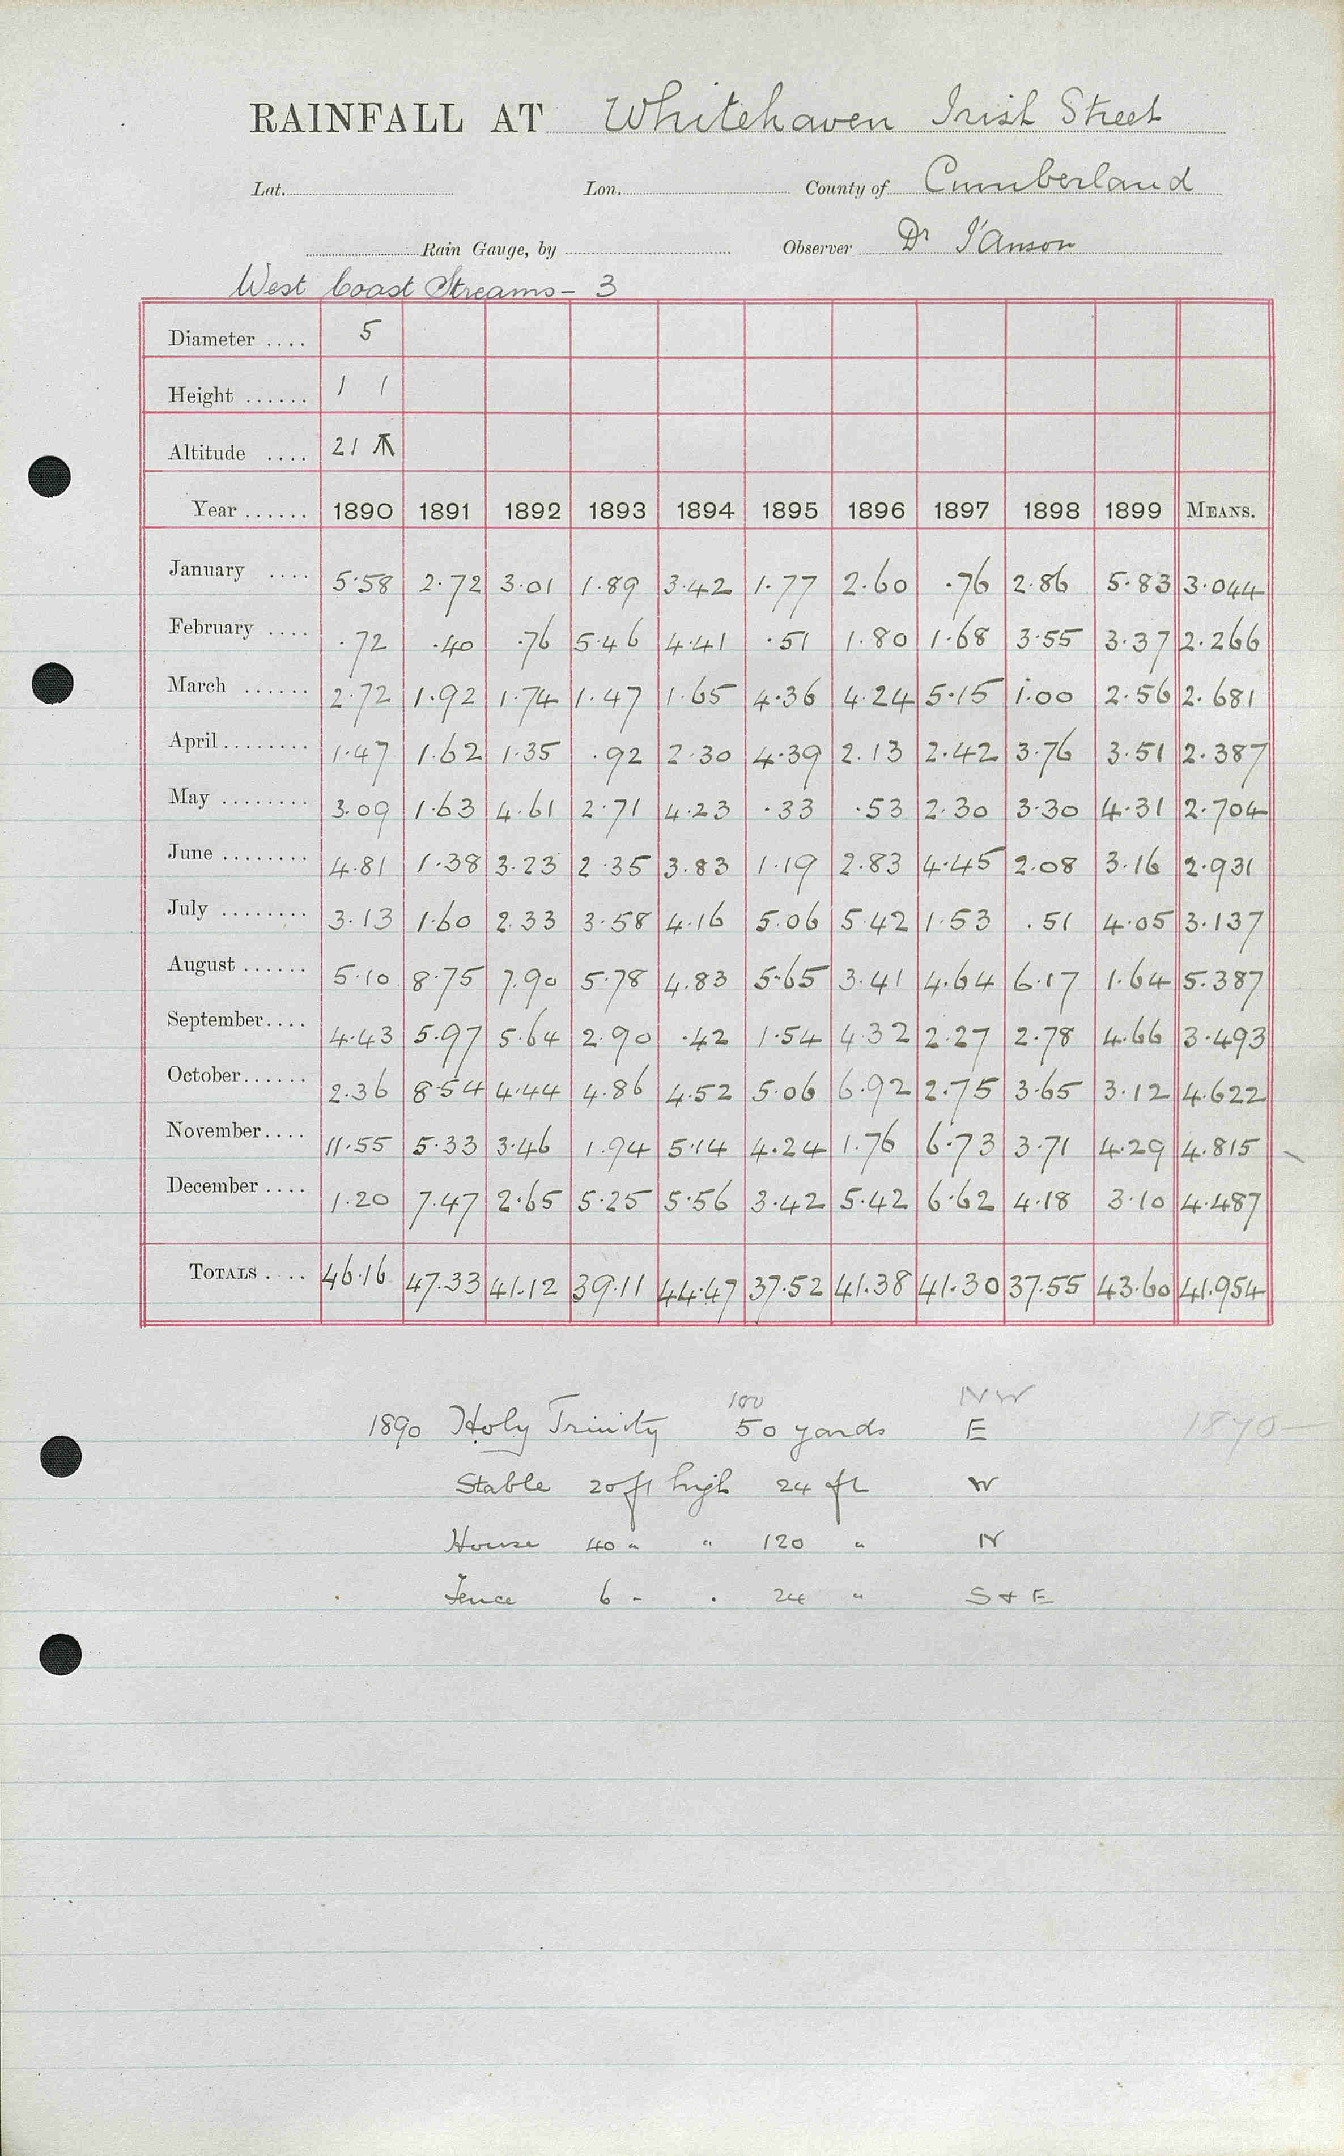 RAINFALL AT Whitehaven Irish Street
Lat. Lon. County of Cumberland
Rain Gauge, by Observer Dr I'Anson
West Coast Streams - 3
Diameter .... 5
Height ...... 1 1
Altitude .... 21
Year ...... 1890 1891 1892 1893 1894 1895 1896 1897 1898 1899 MEANS.
January .... 5.58 2.72 3.01 1.89 3.42 1.77 2.60 .76 2.86 5.83 3.044
February .... .72 .40 .76 5.46 4.41 .51 1.80 1.68 3.55 3.37 2.266
March ...... 2.72 1.92 1.74 1.47 1.65 4.36 4.24 5.15 1.00 2.56 2.681
April ........ 1.47 1.62 1.35 .92 2.30 4.39 2.13 2.42 3.76 3.51 2.387
May ........ 3.09 1.63 4.61 2.71 4.23 .33 .53 2.30 3.30 4.31 2.704
June ........ 4.81 1.38 3.23 2.35 3.83 1.19 2.83 4.45 2.08 3.16 2.931
July ........ 3.13 1.60 2.33 3.58 4.16 5.06 5.42 1.53 .51 4.05 3.137
August ...... 5.10 8.75 7.90 5.78 4.83 5.65 3.41 4.64 6.17 1.64 5.387
September.... 4.43 5.97 5.64 2.90 .42 1.54 4.32 2.27 2.78 4.66 3.493
October...... 2.36 8.54 4.44 4.86 4.52 5.06 6.92 2.75 3.65 3.12 4.622
November.... 11.55 5.33 3.46 1.94 5.14 4.24 1.76 6.73 3.71 4.29 4.815
December .... 1.20 7.47 2.65 5.25 5.56 3.42 5.42 6.62 4.18 3.10 4.487
TOTALS .... 46.16 47.33 41.12 39.11 44.47 37.52 41.38 41.30 37.55 43.60 41.954
100 NW
1890 Holy Trinity 50 yards E 1870-
Stable 20 ft high 24 ft W
House 40 " " 120 " N
Fence 6 " " 24 " S & E